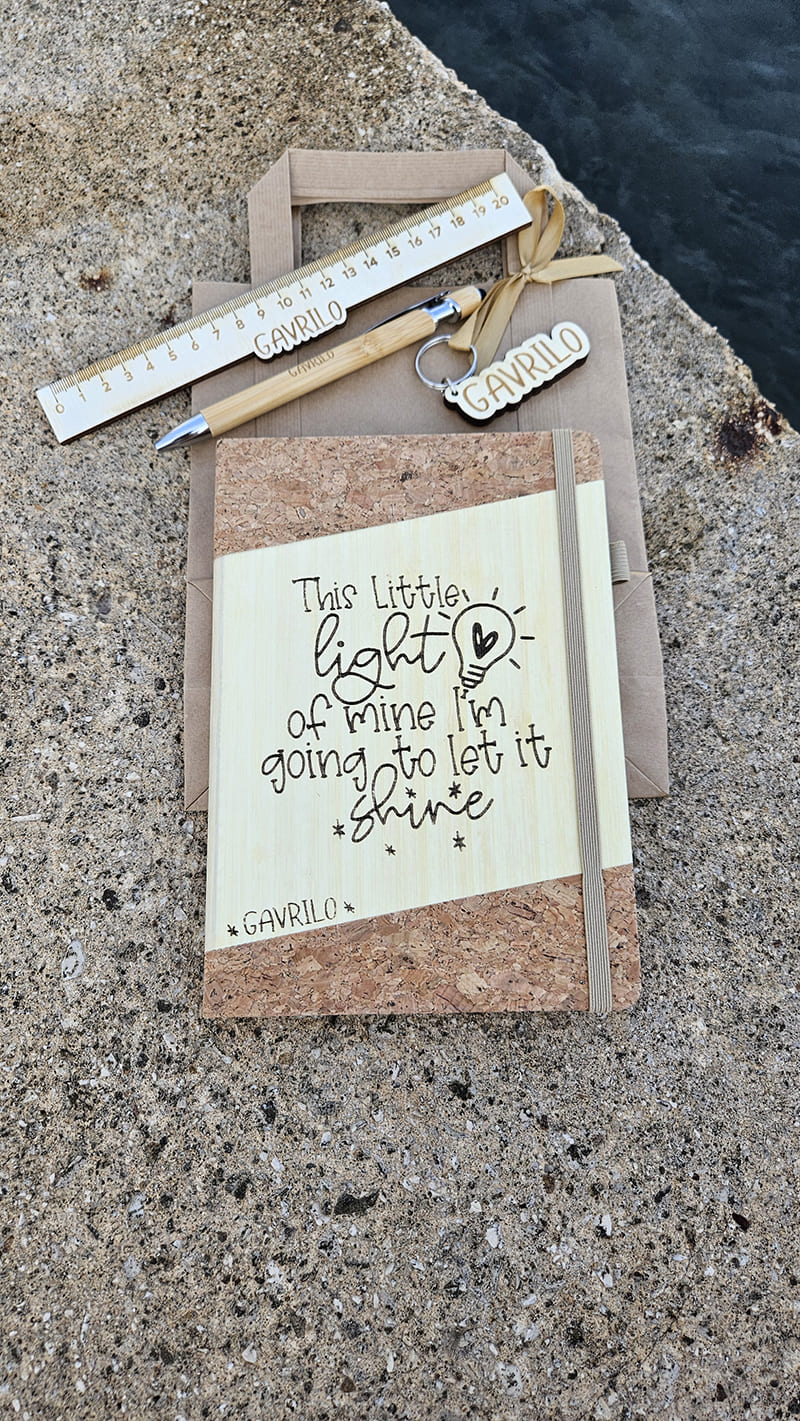 0 1 2 3 4 5 6 7 8 9 10 11 12 13 14 15 16 17 18 19 20
GAVRILO
GAVRILO
GAVRILO
This Little
light
of mine I'm
going to let it
shine
GAVRILO